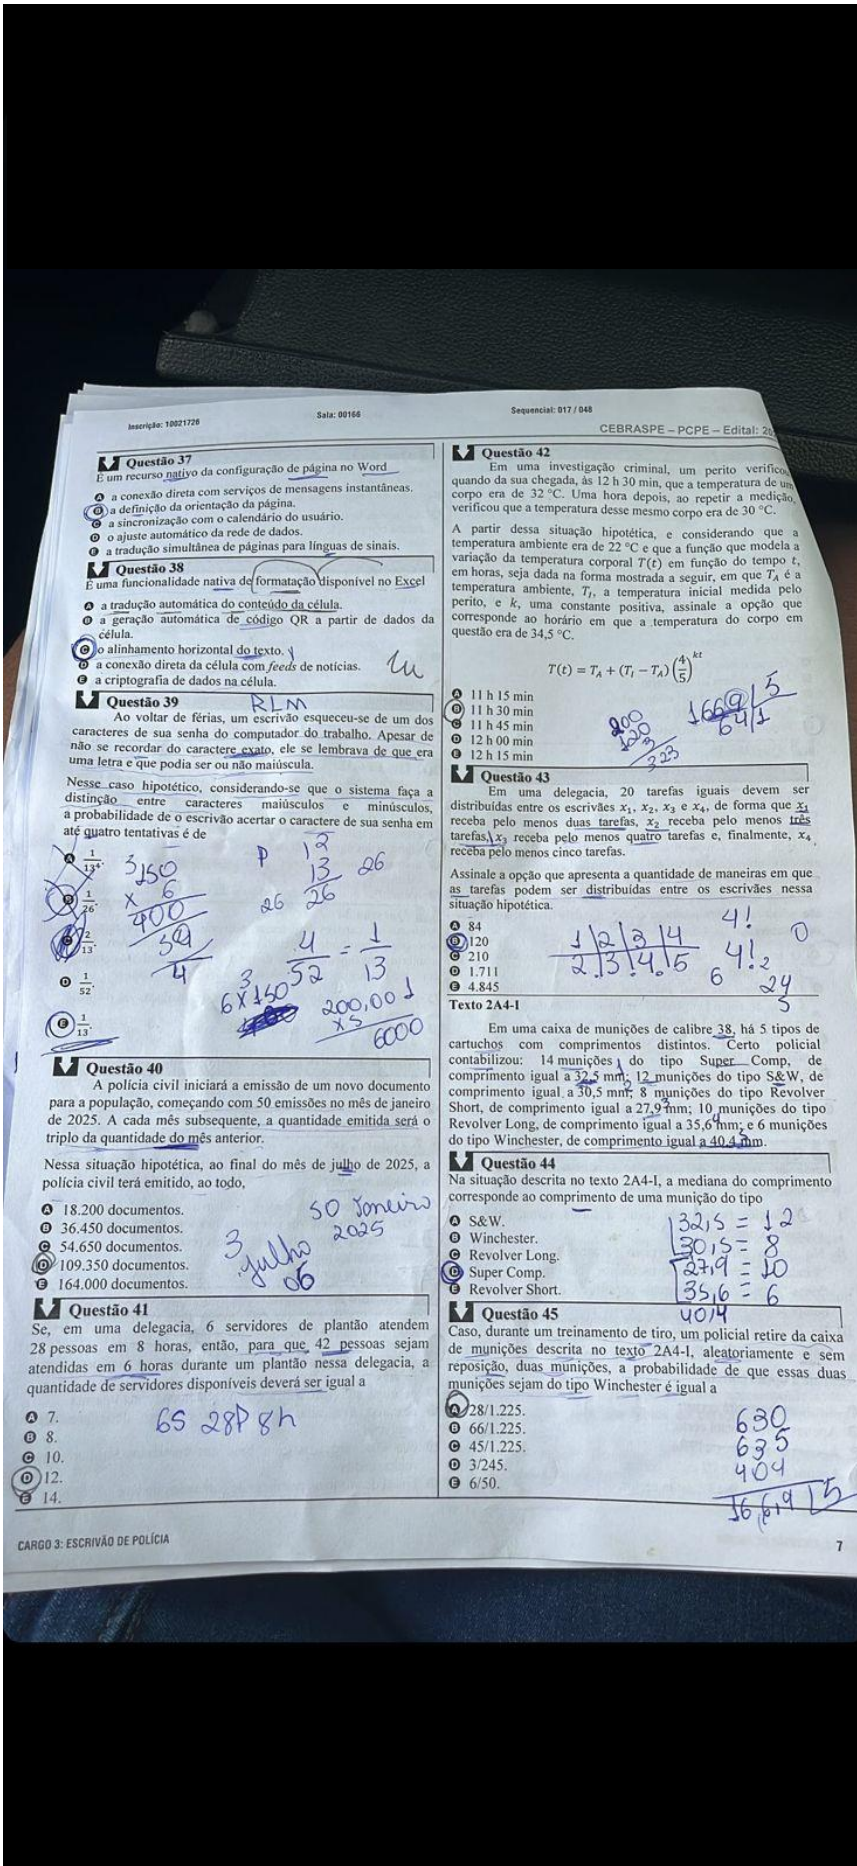 Inscrição: 10021726
Sala: 00166
Sequencial: 017 / 048
CEBRASPE – PCPE – Edital: 20
Questão 37
É um recurso nativo da configuração de página no Word
A a conexão direta com serviços de mensagens instantâneas.
B a definição da orientação da página.
C a sincronização com o calendário do usuário.
D o ajuste automático da rede de dados.
E a tradução simultânea de páginas para línguas de sinais.
Questão 38
É uma funcionalidade nativa de formatação disponível no Excel
A a tradução automática do conteúdo da célula.
B a geração automática de código QR a partir de dados da
célula.
C o alinhamento horizontal do texto.
D a conexão direta da célula com feeds de notícias.
E a criptografia de dados na célula.
Questão 39
RLM
Ao voltar de férias, um escrivão esqueceu-se de um dos
caracteres de sua senha do computador do trabalho. Apesar de
não se recordar do caractere exato, ele se lembrava de que era
uma letra e que podia ser ou não maiúscula.
Nesse caso hipotético, considerando-se que o sistema faça a
distinção entre caracteres maiúsculos e minúsculos,
a probabilidade de o escrivão acertar o caractere de sua senha em
até quatro tentativas é de
A 1/13⁴.
B 1/26.
C 2/13.
D 1/52.
E 1/13.
3
150
x 6
400
P
12
13
26
26
26
4/52 = 1/13
3
6x150
200,00
x5
6000
Questão 40
A polícia civil iniciará a emissão de um novo documento
para a população, começando com 50 emissões no mês de janeiro
de 2025. A cada mês subsequente, a quantidade emitida será o
triplo da quantidade do mês anterior.
Nessa situação hipotética, ao final do mês de julho de 2025, a
polícia civil terá emitido, ao todo,
A 18.200 documentos.
B 36.450 documentos.
C 54.650 documentos.
D 109.350 documentos.
E 164.000 documentos.
50 Janeiro
2025
3
julho
06
Questão 41
Se, em uma delegacia, 6 servidores de plantão atendem
28 pessoas em 8 horas, então, para que 42 pessoas sejam
atendidas em 6 horas durante um plantão nessa delegacia, a
quantidade de servidores disponíveis deverá ser igual a
A 7.
B 8.
C 10.
D 12.
E 14.
6S 28P 8h
CARGO 3: ESCRIVÃO DE POLÍCIA
Questão 42
Em uma investigação criminal, um perito verificou,
quando da sua chegada, às 12 h 30 min, que a temperatura de um
corpo era de 32 °C. Uma hora depois, ao repetir a medição,
verificou que a temperatura desse mesmo corpo era de 30 °C.
A partir dessa situação hipotética, e considerando que a
temperatura ambiente era de 22 °C e que a função que modela a
variação da temperatura corporal T(t) em função do tempo t,
em horas, seja dada na forma mostrada a seguir, em que T_A é a
temperatura ambiente, T_I, a temperatura inicial medida pelo
perito, e k, uma constante positiva, assinale a opção que
corresponde ao horário em que a temperatura do corpo em
questão era de 34,5 °C.
T(t) = T_A + (T_I − T_A)(4/5)^kt
A 11 h 15 min
B 11 h 30 min
C 11 h 45 min
D 12 h 00 min
E 12 h 15 min
200
120
3
323
1669 5
Questão 43
Em uma delegacia, 20 tarefas iguais devem ser
distribuídas entre os escrivães x₁, x₂, x₃ e x₄, de forma que x₁
receba pelo menos duas tarefas, x₂ receba pelo menos três
tarefas, x₃ receba pelo menos quatro tarefas e, finalmente, x₄
receba pelo menos cinco tarefas.
Assinale a opção que apresenta a quantidade de maneiras em que
as tarefas podem ser distribuídas entre os escrivães nessa
situação hipotética.
A 84
B 120
C 210
D 1.711
E 4.845
1 2 3 4
2 3 4 5
4!
4! 2
0
6
24
Texto 2A4-I
Em uma caixa de munições de calibre 38, há 5 tipos de
cartuchos com comprimentos distintos. Certo policial
contabilizou: 14 munições do tipo Super Comp, de
comprimento igual a 32,5 mm; 12 munições do tipo S&W, de
comprimento igual a 30,5 mm; 8 munições do tipo Revolver
Short, de comprimento igual a 27,9 mm; 10 munições do tipo
Revolver Long, de comprimento igual a 35,6 mm; e 6 munições
do tipo Winchester, de comprimento igual a 40,4 mm.
Questão 44
Na situação descrita no texto 2A4-I, a mediana do comprimento
corresponde ao comprimento de uma munição do tipo
A S&W.
B Winchester.
C Revolver Long.
D Super Comp.
E Revolver Short.
32,5 = 12
30,5 = 8
27,9 = 10
35,6 = 6
40,4
Questão 45
Caso, durante um treinamento de tiro, um policial retire da caixa
de munições descrita no texto 2A4-I, aleatoriamente e sem
reposição, duas munições, a probabilidade de que essas duas
munições sejam do tipo Winchester é igual a
A 28/1.225.
B 66/1.225.
C 45/1.225.
D 3/245.
E 6/50.
630
635
404
16,6,9 5
7